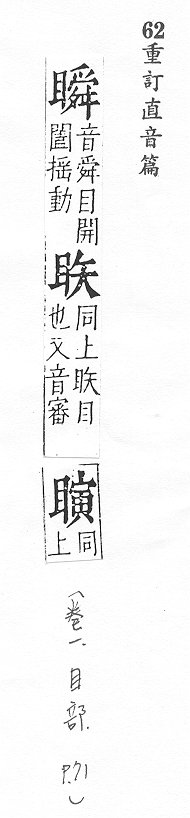 62重訂直音篇
瞬 音舜目開
闔揺動
眣 同上眣目
也又音審
瞚 同
上
(卷一.目部. P.71)